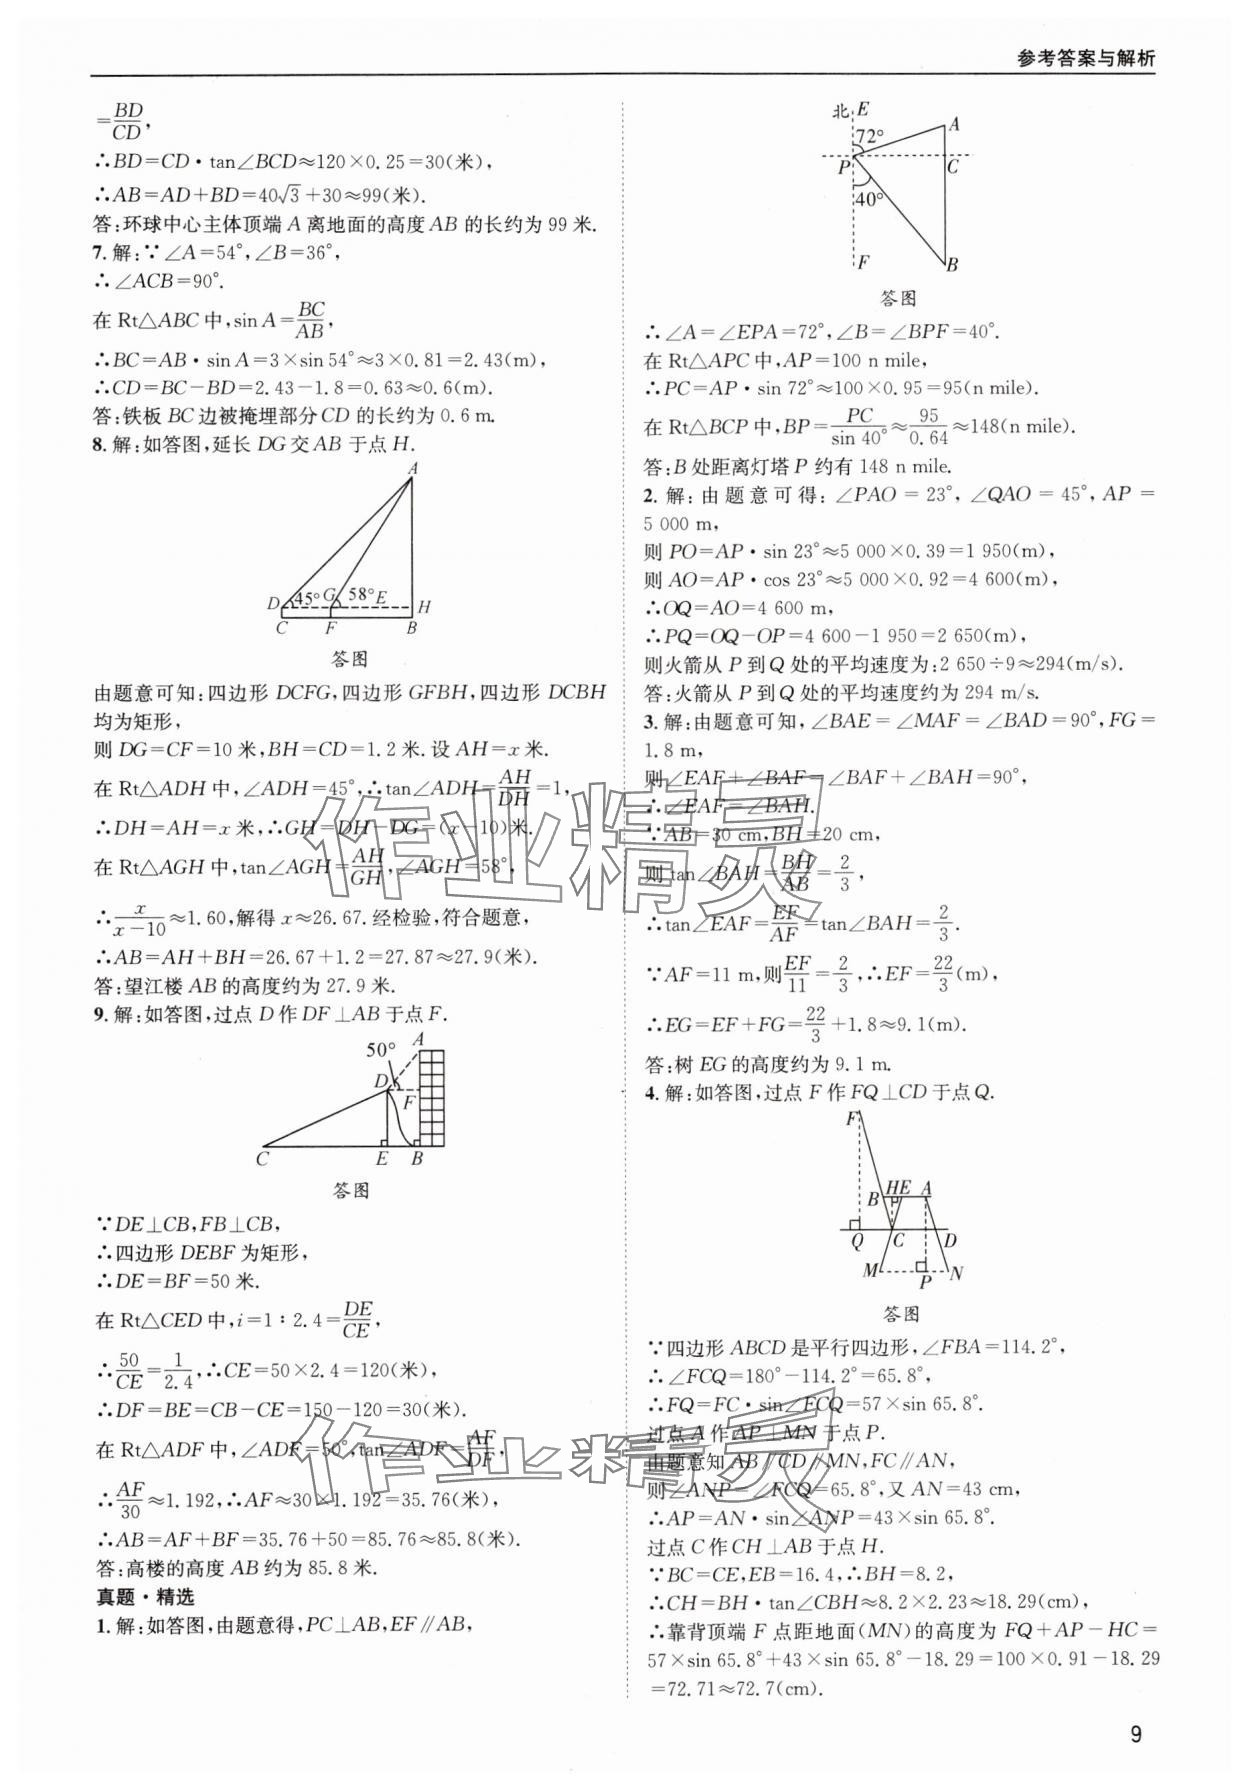 参考答案与解析
=BD/CD,
∴BD=CD·tan∠BCD≈120×0.25=30(米),
∴AB=AD+BD=40√3+30≈99(米).
答:环球中心主体顶端 A 离地面的高度 AB 的长约为 99 米.
7.解:∵∠A=54°,∠B=36°,
∴∠ACB=90°.
在 Rt△ABC 中,sin A=BC/AB,
∴BC=AB·sin A=3×sin 54°≈3×0.81=2.43(m),
∴CD=BC-BD=2.43-1.8=0.63≈0.6(m).
答:铁板 BC 边被掩埋部分 CD 的长约为 0.6 m.
8.解:如答图,延长 DG 交 AB 于点 H.
A
D 45° G 58° E H
C F B
答图
由题意可知:四边形 DCFG,四边形 GFBH,四边形 DCBH
均为矩形,
则 DG=CF=10 米,BH=CD=1.2 米.设 AH=x 米.
在 Rt△ADH 中,∠ADH=45°,∴tan∠ADH=AH/DH=1,
∴DH=AH=x 米,∴GH=DH-DG=(x-10)米.
在 Rt△AGH 中,tan∠AGH=AH/GH,∠AGH=58°,
∴x/(x-10)≈1.60,解得 x≈26.67.经检验,符合题意,
∴AB=AH+BH=26.67+1.2=27.87≈27.9(米).
答:望江楼 AB 的高度约为 27.9 米.
9.解:如答图,过点 D 作 DF⊥AB 于点 F.
A
50°
D
F
C E B
答图
∵DE⊥CB,FB⊥CB,
∴四边形 DEBF 为矩形,
∴DE=BF=50 米.
在 Rt△CED 中,i=1∶2.4=DE/CE,
∴50/CE=1/2.4,∴CE=50×2.4=120(米),
∴DF=BE=CB-CE=150-120=30(米).
在 Rt△ADF 中,∠ADF=50°,tan∠ADF=AF/DF,
∴AF/30≈1.192,∴AF≈30×1.192=35.76(米),
∴AB=AF+BF=35.76+50=85.76≈85.8(米).
答:高楼的高度 AB 约为 85.8 米.
真题·精选
1.解:如答图,由题意得,PC⊥AB,EF∥AB,
北 E
A
72°
P C
40°
F B
答图
∴∠A=∠EPA=72°,∠B=∠BPF=40°.
在 Rt△APC 中,AP=100 n mile,
∴PC=AP·sin 72°≈100×0.95=95(n mile).
在 Rt△BCP 中,BP=PC/sin 40°≈95/0.64≈148(n mile).
答:B 处距离灯塔 P 约有 148 n mile.
2.解:由题意可得:∠PAO=23°,∠QAO=45°,AP=
5 000 m,
则 PO=AP·sin 23°≈5 000×0.39=1 950(m),
则 AO=AP·cos 23°≈5 000×0.92=4 600(m),
∴OQ=AO=4 600 m,
∴PQ=OQ-OP=4 600-1 950=2 650(m),
则火箭从 P 到 Q 处的平均速度为:2 650÷9≈294(m/s).
答:火箭从 P 到 Q 处的平均速度约为 294 m/s.
3.解:由题意可知,∠BAE=∠MAF=∠BAD=90°,FG=
1.8 m,
则∠EAF+∠BAF=∠BAF+∠BAH=90°,
∴∠EAF=∠BAH.
∵AB=30 cm,BH=20 cm,
则 tan∠BAH=BH/AB=2/3,
∴tan∠EAF=EF/AF=tan∠BAH=2/3.
∵AF=11 m,则EF/11=2/3,∴EF=22/3(m),
∴EG=EF+FG=22/3+1.8≈9.1(m).
答:树 EG 的高度约为 9.1 m.
4.解:如答图,过点 F 作 FQ⊥CD 于点 Q.
F
B H E A
Q C D
M P N
答图
∵四边形 ABCD 是平行四边形,∠FBA=114.2°,
∴∠FCQ=180°-114.2°=65.8°,
∴FQ=FC·sin∠FCQ=57×sin 65.8°.
过点 A 作 AP⊥MN 于点 P.
由题意知 AB∥CD∥MN,FC∥AN,
则∠ANP=∠FCQ=65.8°,又 AN=43 cm,
∴AP=AN·sin∠ANP=43×sin 65.8°.
过点 C 作 CH⊥AB 于点 H.
∵BC=CE,EB=16.4,∴BH=8.2,
∴CH=BH·tan∠CBH≈8.2×2.23≈18.29(cm),
∴靠背顶端 F 点距地面(MN)的高度为 FQ+AP-HC=
57×sin 65.8°+43×sin 65.8°-18.29=100×0.91-18.29
=72.71≈72.7(cm).
作业精灵
作业精灵
9